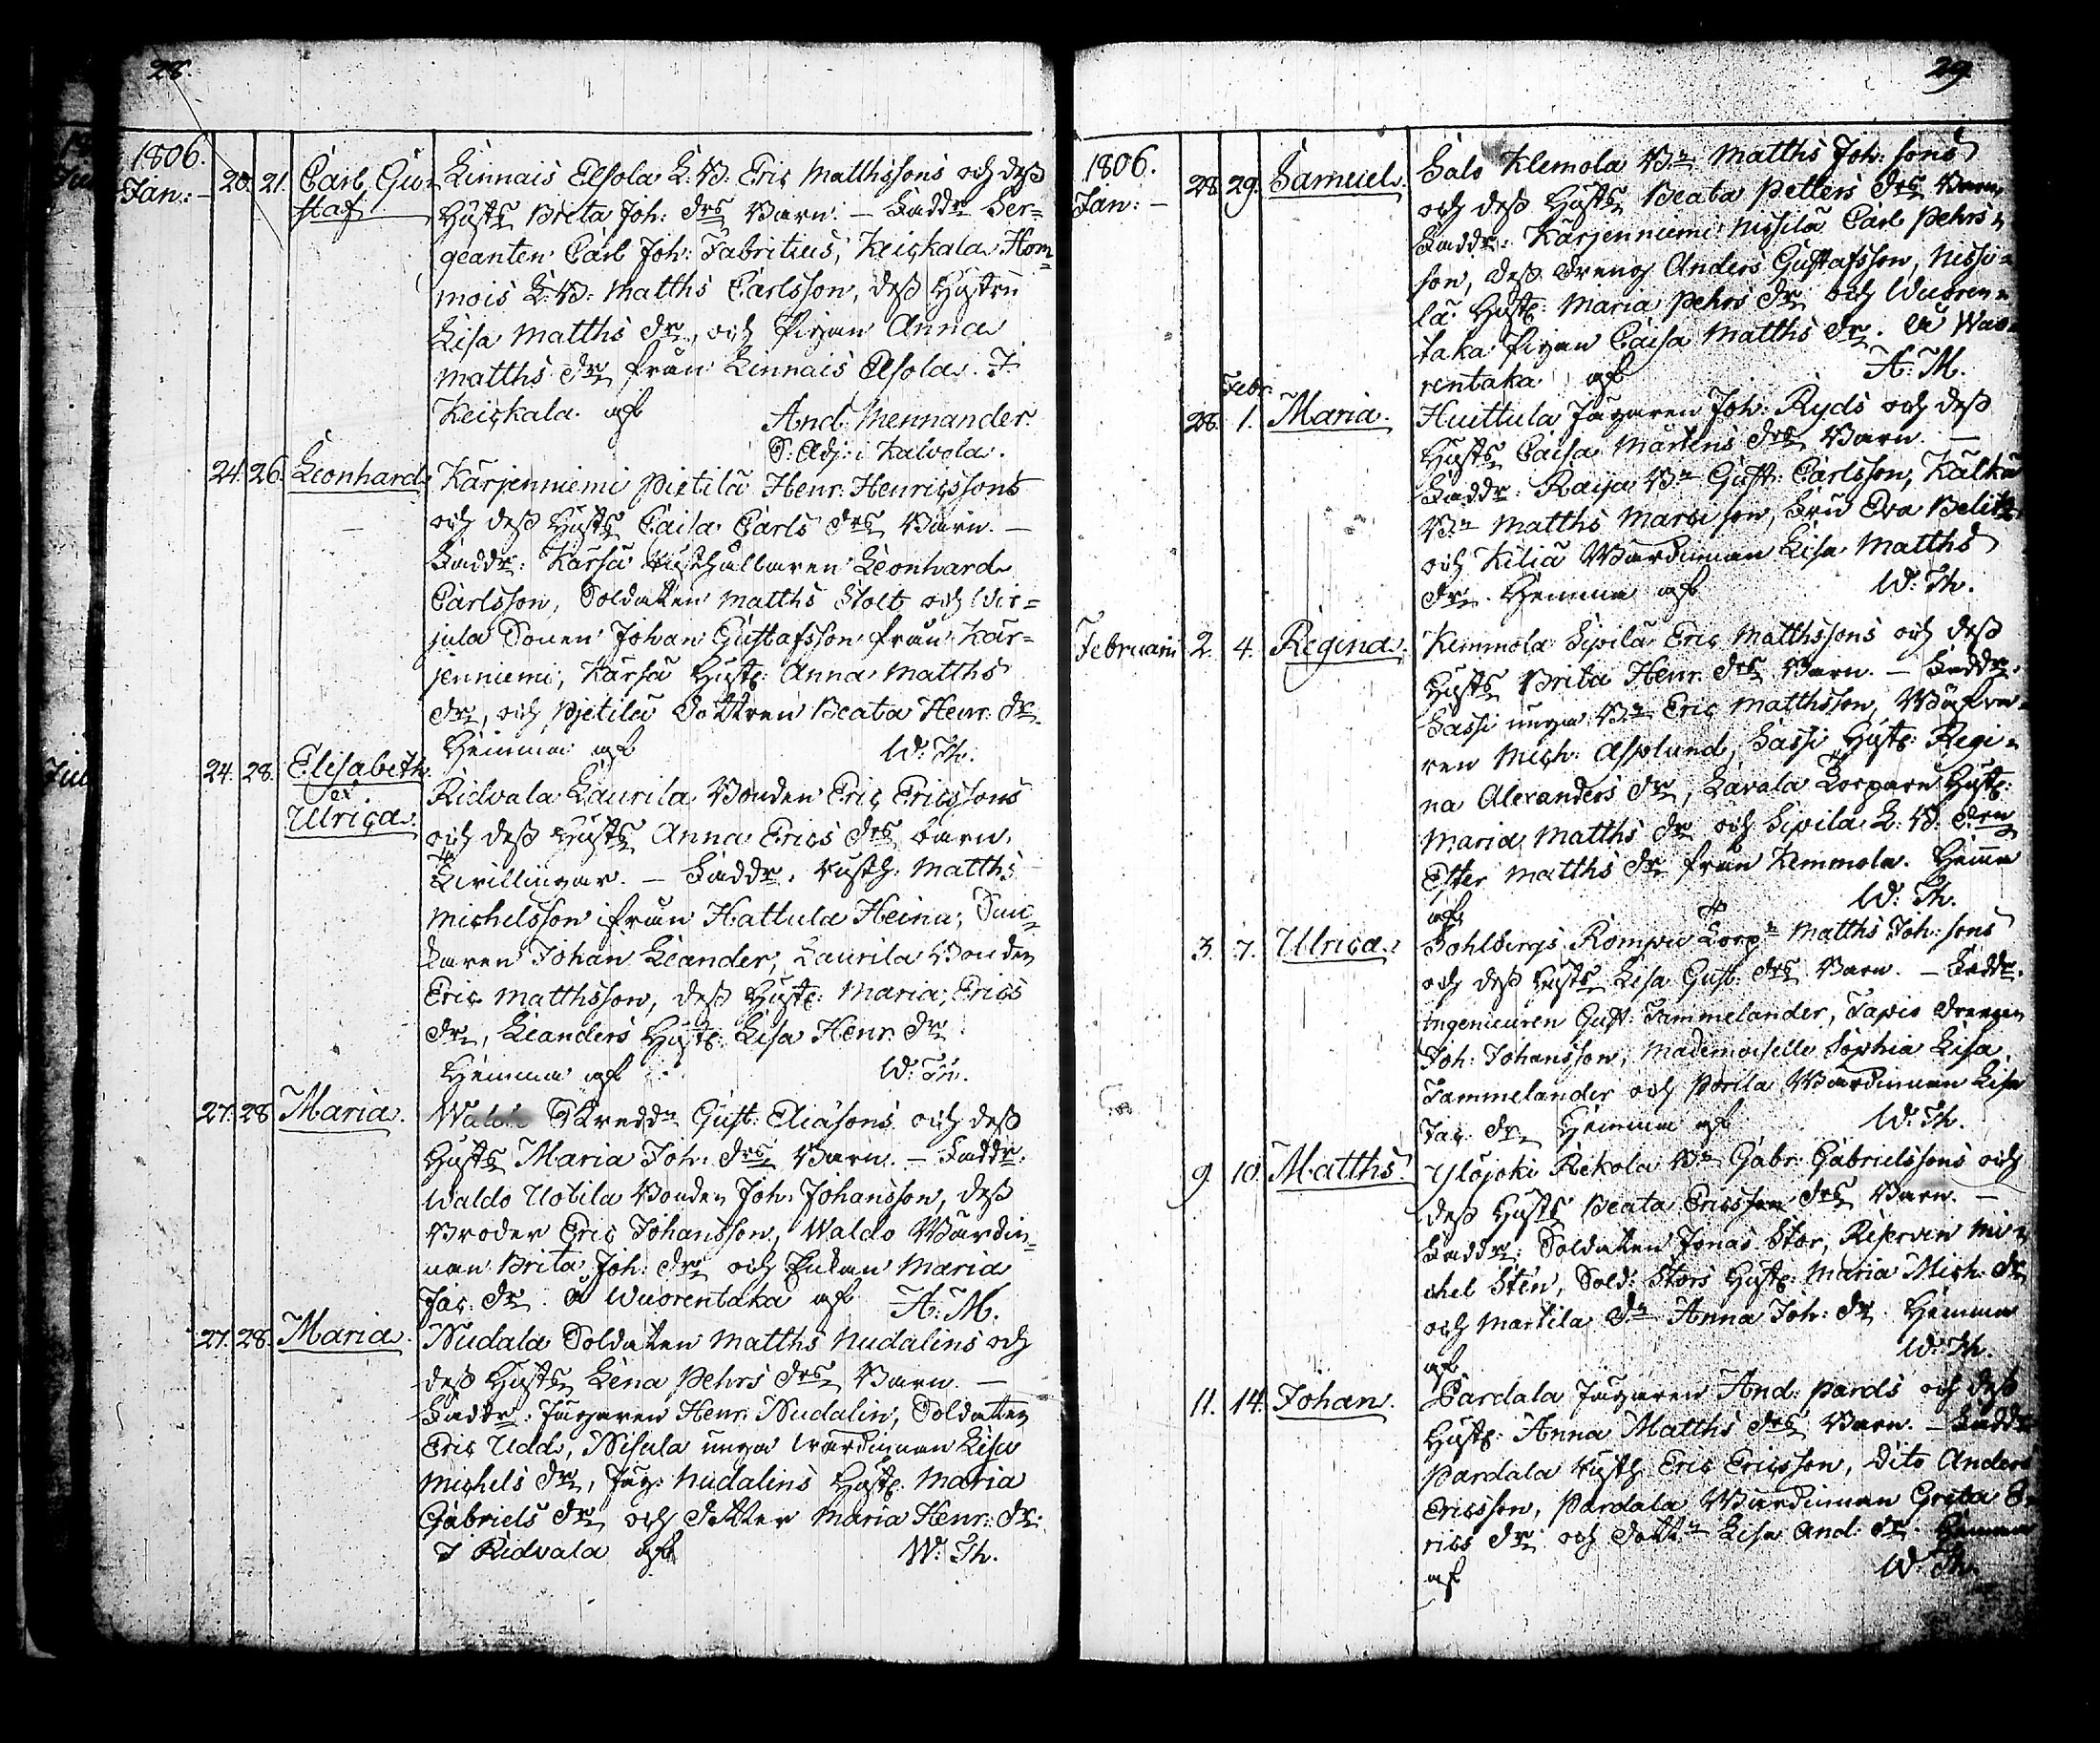 28.
1806.
Jan: – 20. 21. Carl Gu= Linnais Elsola L: B: Eric Matthssons och dess
staf Hustrs Brita Joh: drs Barn. – Faddr Ser=
geanten Carl Joh: Fabritius, Keickala Hom=
mois L: B: Matths Carlsson, dess Hustru
Lisa Matths dr, och Pigan Anna
Matths dr från Linnais Elsola. I
Keickala af And. Mennander.
S: Adj: i Kalvola.
24. 26. Leonhard. Karjenniemi Pietilä Henr. Henricssons
och dess Hustrs Caisa Carls drs Barn. –
Faddr: Karsa Rusthållaren Leonhard
Carlsson, Soldaten Matths Stolt och Wir=
jula Sonen Johan Gustafsson från Kar=
jenniemi, Karsa Hustr: Anna Matths
dr, och Pjetilä Dottren Beata Henr: dr.
Hemma af W: Th.
24. 28. Elisabeth Ridvala Laurila Bonden Eric Ericssons
et
Ulrica. och dess Hustrs Anna Erics drs barn,
Tvillingar. – Faddr. Rusth: Matths
Michelsson ifrån Hattula Heinu, Snic=
karen Johan Leander, Laurila Bonden
Eric Matthsson, dess Hustr: Maria Erics
dr, Leanders Hustr: Lisa Henr. dr
Hemma af W: Th.
27. 28 Maria. Skreddn Gust: Eliäsons och dess
Hustrs Maria Joh: drs Barn. – Faddr.
Waldo Uotila Bonden Joh: Johansson, dess
Broder Eric Johansson, Waldo Wärdin=
nan Brita Joh: dr och Enkan Maria
Jac: dr. å Wuorentaka af A: M.
27. 28. Maria. Nudala Soldaten Matths Nudalins och
dess Hustrs Lena Pehrs drs Barn. –
Faddr: Jägaren Henr. Nudalin, Soldaten
Eric Udd, Nisula unga wärdinnan Lisa
Michels dr, Jäg: Nudalins Hustr: Maria
Gabriels dr och dotter Maria Henr: dr.
I Ridvala af W: Th.
29.
1806.
Jan: – 28. 29. Samuel. Salo Klemola Bn Matths Joh: sons
och dess Hustrs Beata Petters drs Barn.
Faddr: Karjenniemi Nissilä Carl Pehrs=
son, dess dreng Anders Gustafsson, Nissi=
lä Hustr: Maria Pehrs dr och Wuoren=
taka Pigan Caisa Matths dr. å Wuo=
rentaka af A: M.
Febr.
28. 1. Maria. Huittula Jägaren Joh: Ryds och dess
Hustrs Caisa Mårtens drs Barn. –
Faddr: Raija Bn Gust: Carlsson, Kalka
Bn Matths son, Fru Eva
och Kiliä Wärdinnan Lisa Matths
dr. Hemma af W: Th.
Februarii 2. 4. Regina. Kemmola Sipilä Eric Matthssons och dess
Hustrs Brita Henr. drs Barn. – Faddr.
Sassi unga Bn Eric Matthsson, Wäfva=
ren Mich: Asplund, Sassi Hustr: Regi=
na Alexanders dr, Lavala Torparn Hustr:
Maria Matths dr och Sipilä L: B. dren
Ester Matths dr från Kemmola. Hemma
af W: Th.
3. 7. Ulrica. Sohlbergs Rompu Torpn Matths Joh: sons
och dess Hustrs Lisa Gust. drs Barn. – Faddr.
Ingenieuren Gust: Tammelander, Tapio drengen
Joh: Johansson, Mademoiselle Sophia Lisa
Tammelander och Porila Wärdinnan Lisa
Jac. dr. Hemma af W: Th.
9. 10. Matths. Ylöjoki Rekola Bn Gabr: Gabrielssons och
dess Hustrs Beata Ericsson drs Barn. –
Faddr: Soldaten Jonas Stor, Reserven Mi=
chel Sten, Sold: Stors Hustr: Maria Mich: dr
och Martila Dn Anna Joh: dr. Hemma
af W: Th.
11. 14. Johan. Pardala Jägaren And: Pards och dess
Hustr: Anna Matths drs Barn. – Faddr
Pardala Rusth: Eric Ericsson, dito Anders
Ericsson, Pardala Wärdinnan Greta E=
rics dr. och dottn Lisa And: dr. Hemma
af W: Th.